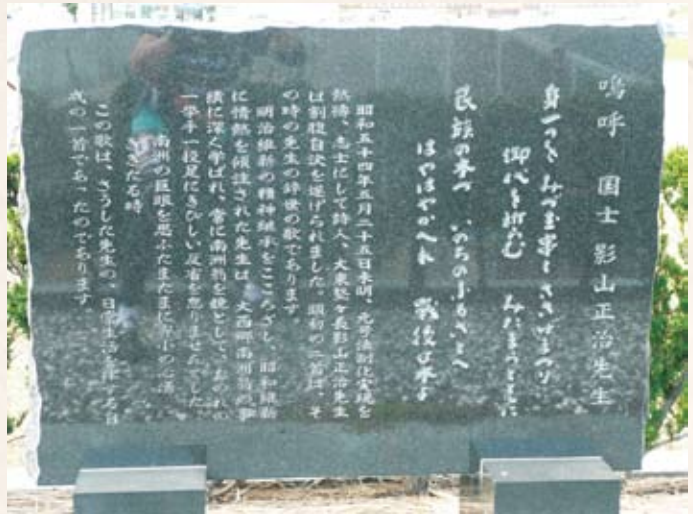 嗚呼 国士 影山正治先生
身一つを みづ玉串と ささげまつり
御代を祈らむ みたまらとともに
民族の本つ いのちのふるさとへ
はやはやかへれ 戦後日本よ
昭和五十四年五月二十五日未明、元号法制化実現を
熱禱、志士にして詩人、大東塾々長影山正治先生
は割腹自決を遂げられました。頭初の二首は、そ
の時の先生の辞世の歌であります。
明治維新の精神継承をこころざし、昭和維新
に情熱を傾注された先生は、大西郷南洲翁の事
蹟に深く学ばれ、常に南洲翁を鏡として、おのれの
一挙手一投足にきびしい反省を怠りませんでした。
南洲の巨眼を思ふたまたまに 小の心湧
ききたる時
この歌は、さうした先生の、日常生活を律する自
戒の一首であったのであります。